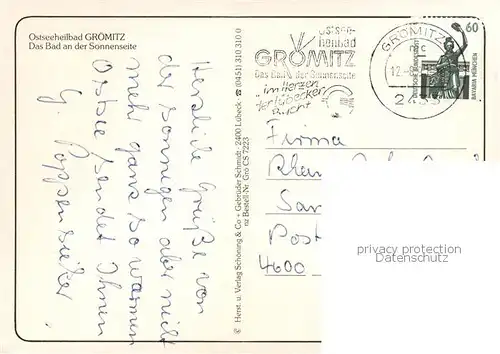 Ostseeheilbad GRÖMITZ
Das Bad an der Sonnenseite
Herzliche Grüße von
der sonnigen aber nicht
mehr ganz so warmen
Ostsee sendet Ihnen
G. Poppensieker
© Herst. u. Verlag Schöning & Co + Gebrüder Schmidt · 2400 Lübeck · ☎ (0451) 310 310 0
nz Bestell Nr. Grö CS 7223
Ostsee-
heilbad
GRÖMITZ
Das Bad an der Sonnenseite
"im Herzen
der Lübecker
Bucht
GRÖMITZ
mc
12.-9.
2433
60
DEUTSCHE BUNDESPOST
BAVARIA MÜNCHEN
Firma
Post
4600
privacy protection
oldthing.com